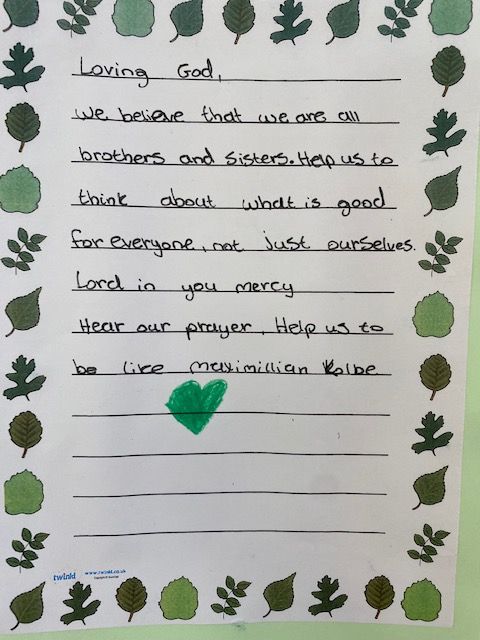 Loving God,
we believe that we are all
brothers and sisters. Help us to
think about what is good
for everyone, not just ourselves.
Lord in you mercy
Hear our prayer. Help us to
be like maximillian Kolbe
twinkl www.twinkl.co.uk